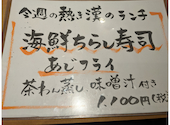 今週の熱き漢のランチ
海鮮ちらし寿司
あじフライ
茶わん蒸し味噌汁付き
1,100円(税